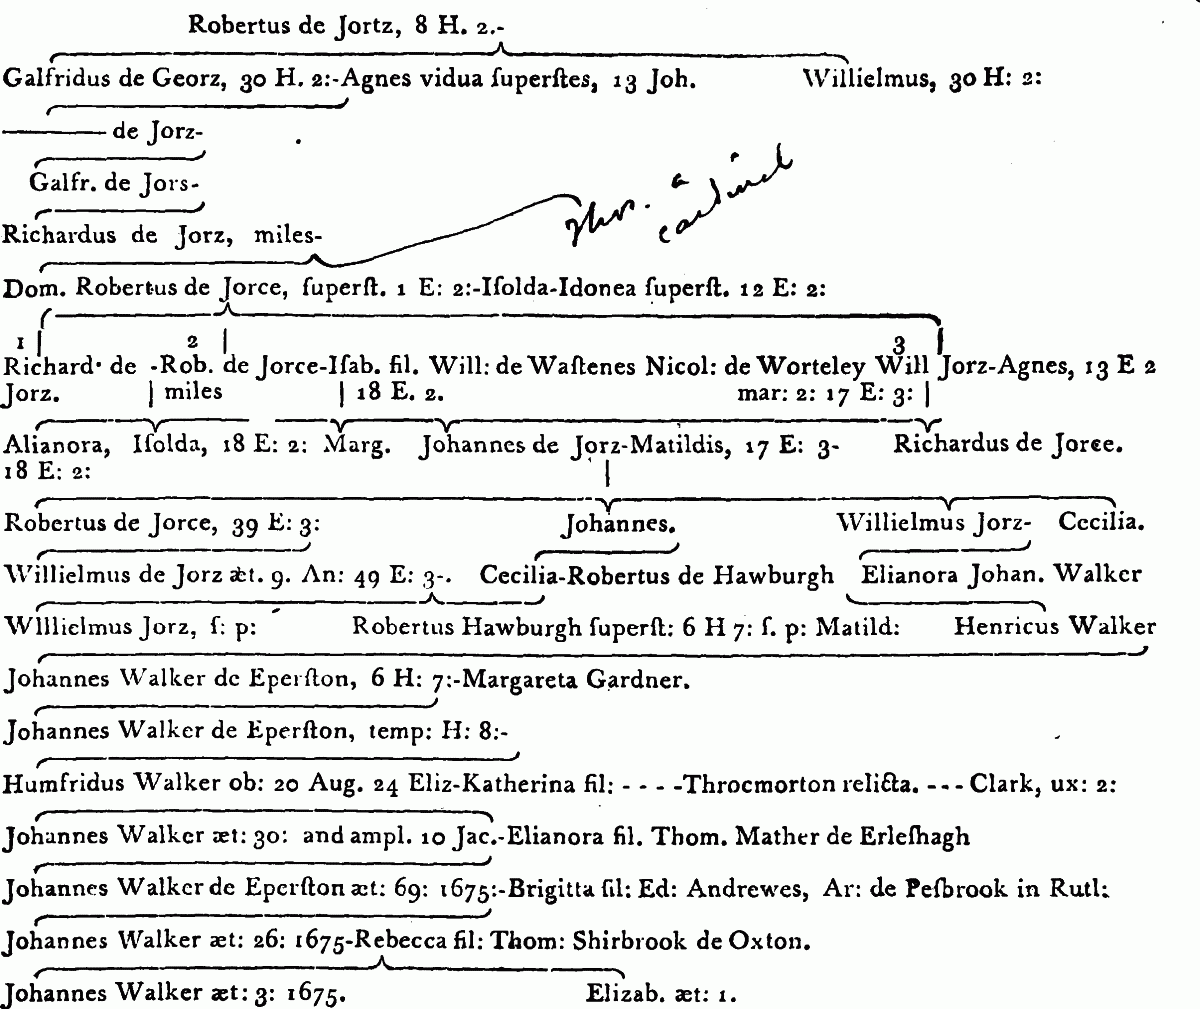 Robertus de Jortz, 8 H. 2.-
Galfridus de Georz, 30 H. 2:-Agnes vidua ſuperſtes, 13 Joh. Willielmus, 30 H: 2:
——— de Jorz-
Galfr. de Jors-
Richardus de Jorz, miles-
a cardinal
Dom. Robertus de Jorce, ſuperſt. 1 E: 2:-Iſolda-Idonea ſuperſt. 12 E: 2:
1 2 3
Richard· de -Rob. de Jorce-Iſab. fil. Will: de Waſtenes Nicol: de Worteley Will Jorz-Agnes, 13 E 2
Jorz. miles 18 E. 2. mar: 2: 17 E: 3:
Alianora, Iſolda, 18 E: 2: Marg. Johannes de Jorz-Matildis, 17 E: 3- Richardus de Jorce.
18 E: 2:
Robertus de Jorce, 39 E: 3: Johannes. Willielmus Jorz- Cecilia.
Willielmus de Jorz æt. 9. An: 49 E: 3-. Cecilia-Robertus de Hawburgh Elianora Johan. Walker
Willielmus Jorz, ſ: p: Robertus Hawburgh ſuperſt: 6 H 7: ſ. p: Matild: Henricus Walker
Johannes Walker de Eperſton, 6 H: 7:-Margareta Gardner.
Johannes Walker de Eperſton, temp: H: 8:-
Humfridus Walker ob: 20 Aug. 24 Eliz-Katherina fil: - - - -Throcmorton relicta. --- Clark, ux: 2:
Johannes Walker æt: 30: and ampl. 10 Jac.-Elianora fil. Thom. Mather de Erleſhagh
Johannes Walker de Eperſton æt: 69: 1675:-Brigitta fil: Ed: Andrewes, Ar: de Peſbrook in Rutl:
Johannes Walker æt: 26: 1675-Rebecca fil: Thom: Shirbrook de Oxton.
Johannes Walker æt: 3: 1675. Elizab. æt: 1.